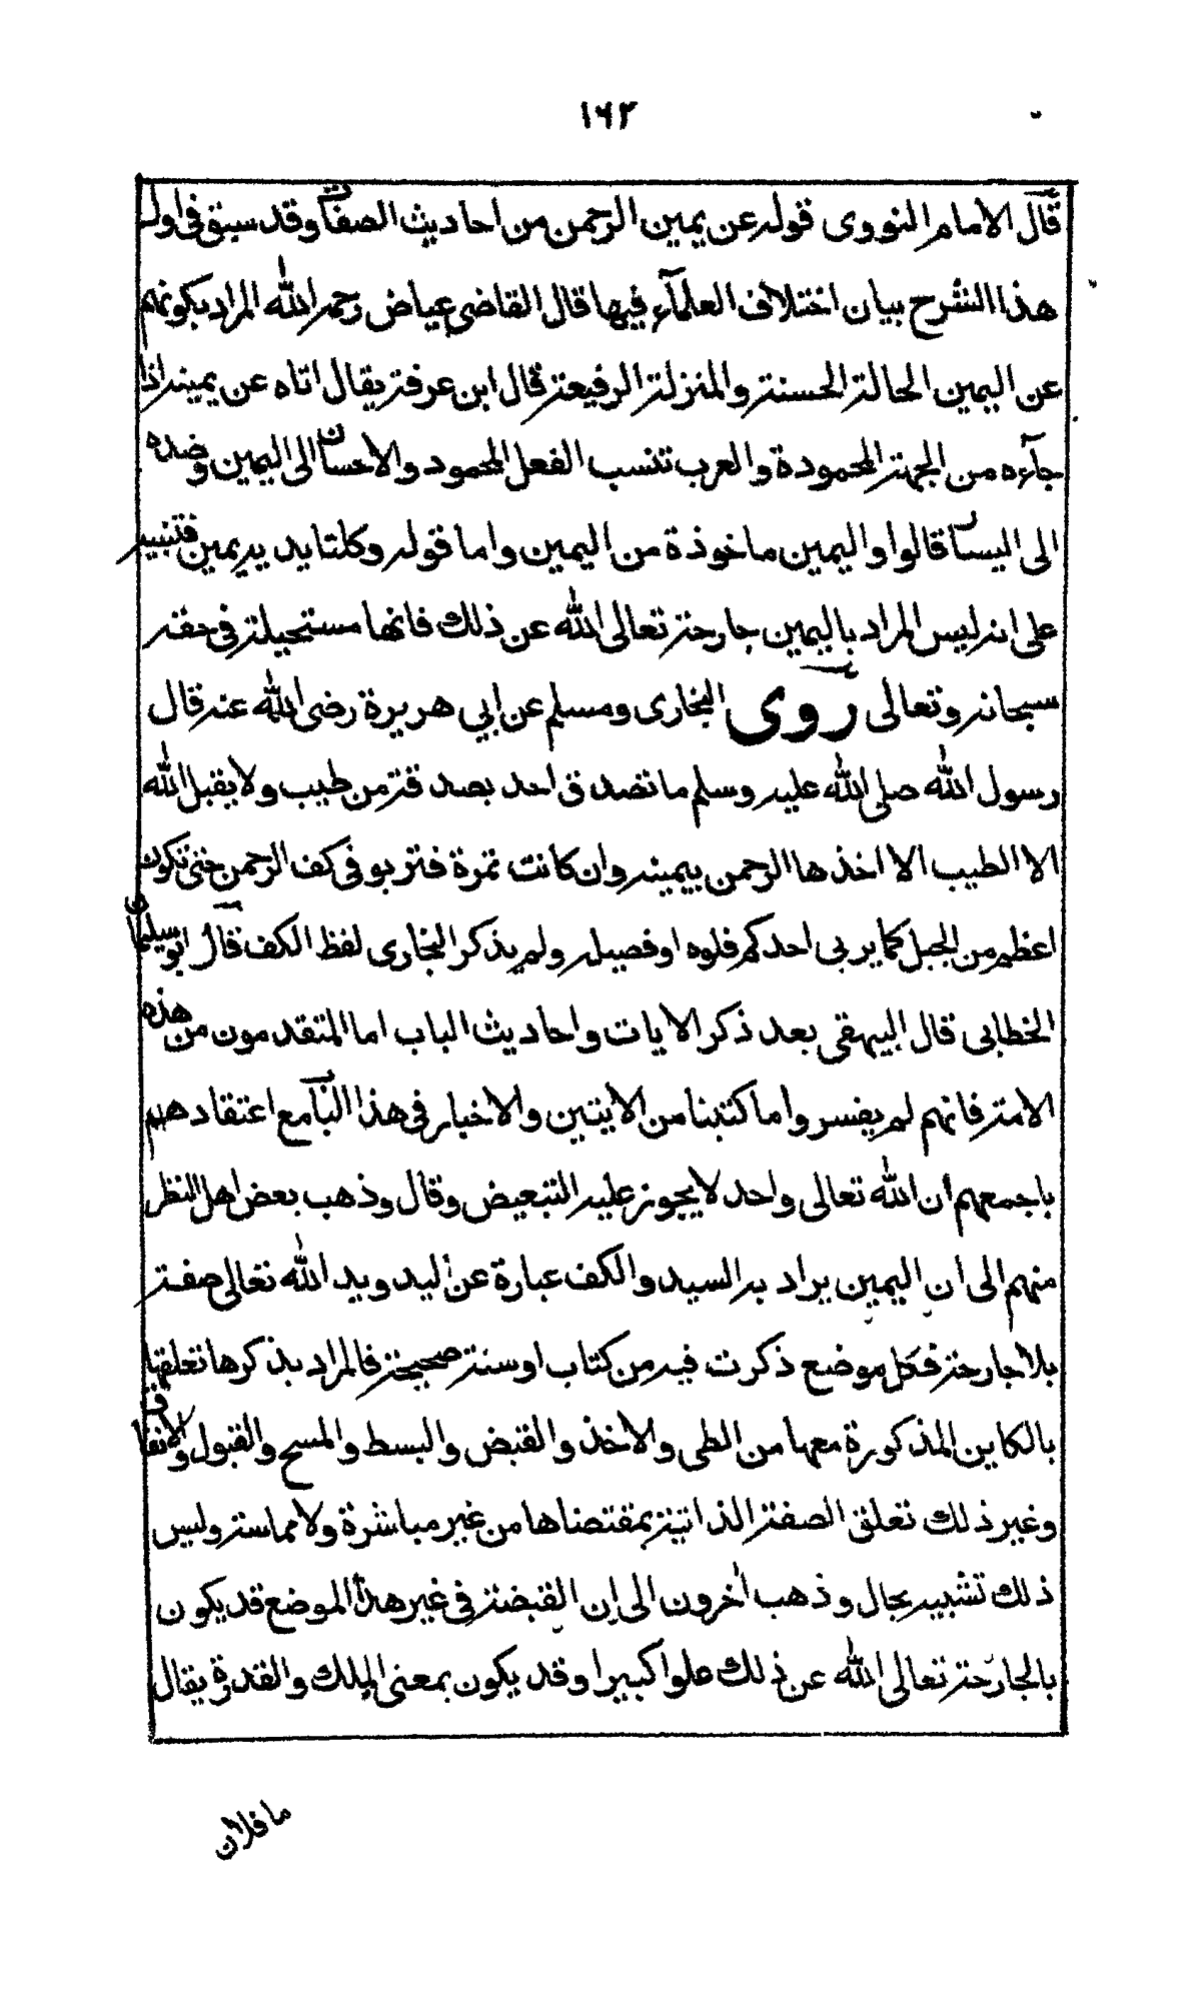 ١٦٢
قال الامام النووى قوله عن يمين الرحمن من احاديث الصفات وقد سبق فى اول
هذا الشرح بيان اختلاف العلمآء فيها قال القاضى عياض رحمه الله المراد بكونهم
عن اليمين الحالة الحسنة والمنزلة الرفيعة قال ابن عرفة يقال اتاه عن يمينه اذا
جآءه من الجهة المحمودة والعرب تنسب الفعل المحمود والاحسان الى اليمين وضده
الى اليسار قالوا واليمين ماخوذة من اليمين واما قوله وكلتا يديه يمين فتنبيه
على انه ليس المراد باليمين جارحة تعالى الله عن ذلك فانها مستحيلة فى حقه
سبحانه وتعالى روى البخارى ومسلم عن ابي هريرة رضى الله عنه قال
رسول الله صلى الله عليه وسلم ما تصدق احد بصدقة من طيب ولا يقبل الله
الا الطيب الا اخذها الرحمن بيمينه وان كانت تمرة فتربو فى كف الرحمن حتى تكون
اعظم من الجبل كما يربى احدكم فلوه او فصيله ولم يذكر البخارى لفظ الكف قال ابو سليمان
الخطابى قال البيهقى بعد ذكر الايات واحاديث الباب اما المتقدمون من هذه
الامة فانهم لم يفسروا ما كتبنا من الايتين والاخبار فى هذا الباب مع اعتقادهم
باجمعهم ان الله تعالى واحد لا يجوز عليه التبعيض وقال وذهب بعض اهل النظر
منهم الى ان اليمين يراد به السيد والكف عبارة عن اليد ويد الله تعالى صفة
بلا جارحة فكل موضع ذكرت فيه من كتاب او سنة صحيحة فالمراد بذكرها تعلقها
بالكاين المذكورة معها من الطى والاخذ والقبض والبسط والمسح والقبول والانفاق
وغير ذلك تعلق الصفة الذاتية بمقتضاها من غير مباشرة ولا مماسة وليس
ذلك تشبيه بحال وذهب اخرون الى ان القبضة فى غير هذا الموضع قد يكون
بالجارحة تعالى الله عن ذلك علوا كبيرا وقد يكون بمعنى الملك والقدرة يقال
ما فلان